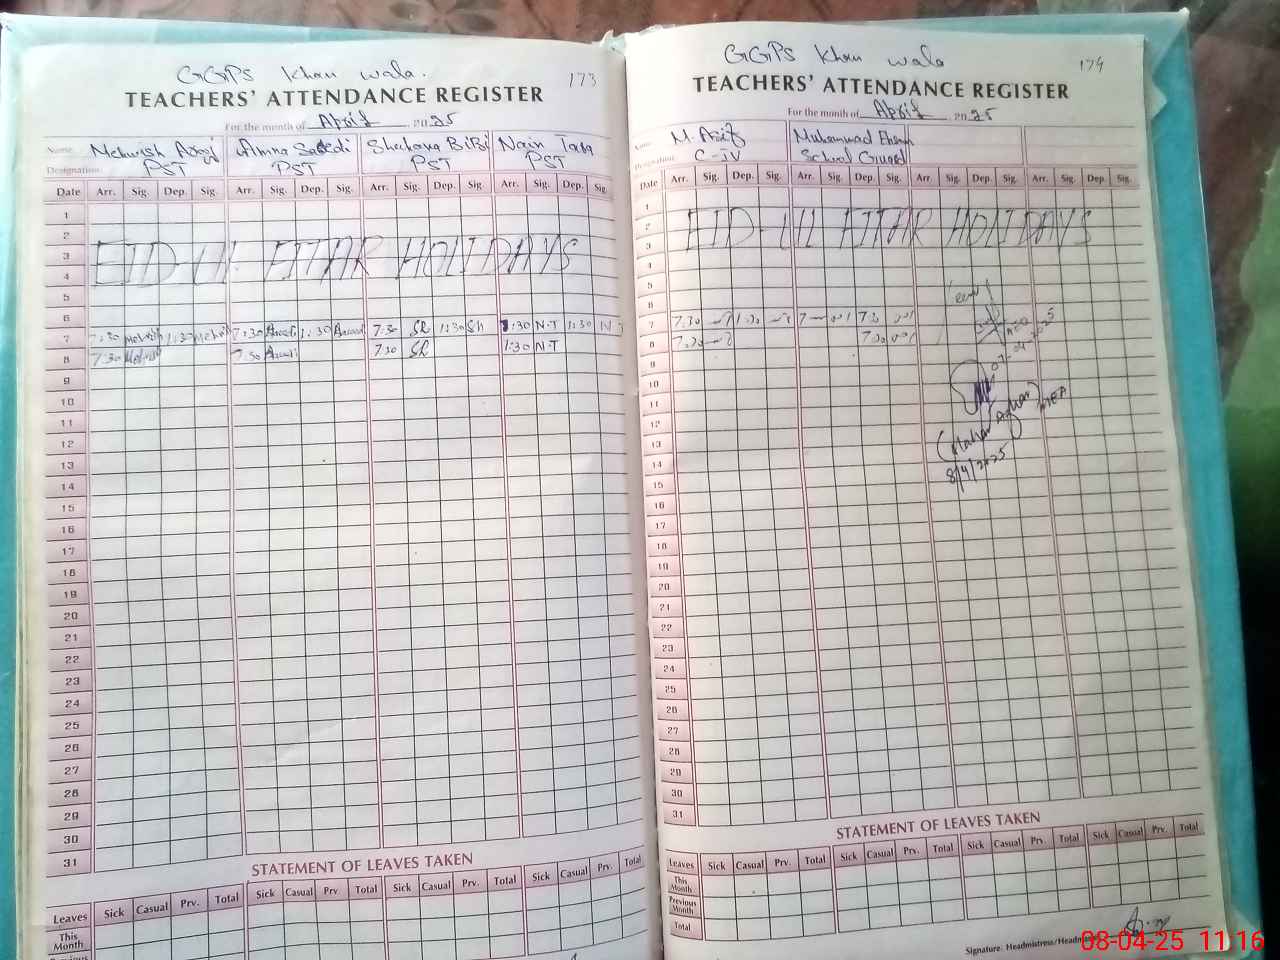 GGPS Khan wala.
173
TEACHERS' ATTENDANCE REGISTER
For the month of April 2025
Name: Mehwish Amna Shehana BiBi Nain Tara
Designation: PST PST PST PST
Date Arr. Sig. Dep. Sig. Arr. Sig. Dep. Sig. Arr. Sig. Dep. Sig. Arr. Sig. Dep. Sig.
1
2
3
EID-UL FITAR HOLIDAYS
4
5
6
7 7:30 1:30 7:30 1:30 7:30 1:30 Sh 1:30 N.T 1:30
8 7:30 7:30 7:30 1:30 N.T
9
10
11
12
13
14
15
16
17
18
19
20
21
22
23
24
25
26
27
28
29
30
31
STATEMENT OF LEAVES TAKEN
Leaves Sick Casual Prv. Total Sick Casual Prv Total Sick Casual Prv. Total Sick Casual Prv. Total
This Month
Previous
GGPS Khan wala
174
TEACHERS' ATTENDANCE REGISTER
For the month of April 2025
Name: M. Asif Muhammad
Designation: C-IV School Guard
Date Arr. Sig. Dep. Sig. Arr. Sig. Dep. Sig. Arr. Sig. Dep. Sig. Arr. Sig. Dep. Sig.
1
2
EID-UL FITAR HOLIDAYS
3
4
5
6
7 7:30 7:30
8 7:30 7:30
AEO
07-04-2025
9
10
11
12
(Mahar Azhar)
MEA
13
14
8/4/2025
15
16
17
18
19
20
21
22
23
24
25
26
27
28
29
30
31
STATEMENT OF LEAVES TAKEN
Leaves Sick Casual Prv. Total Sick Casual Prv. Total Sick Casual Prv. Total Sick Casual Prv. Total
This Month
Previous Month
Total
Signature: Headmistress/Headmaster
08-04-25 11:16